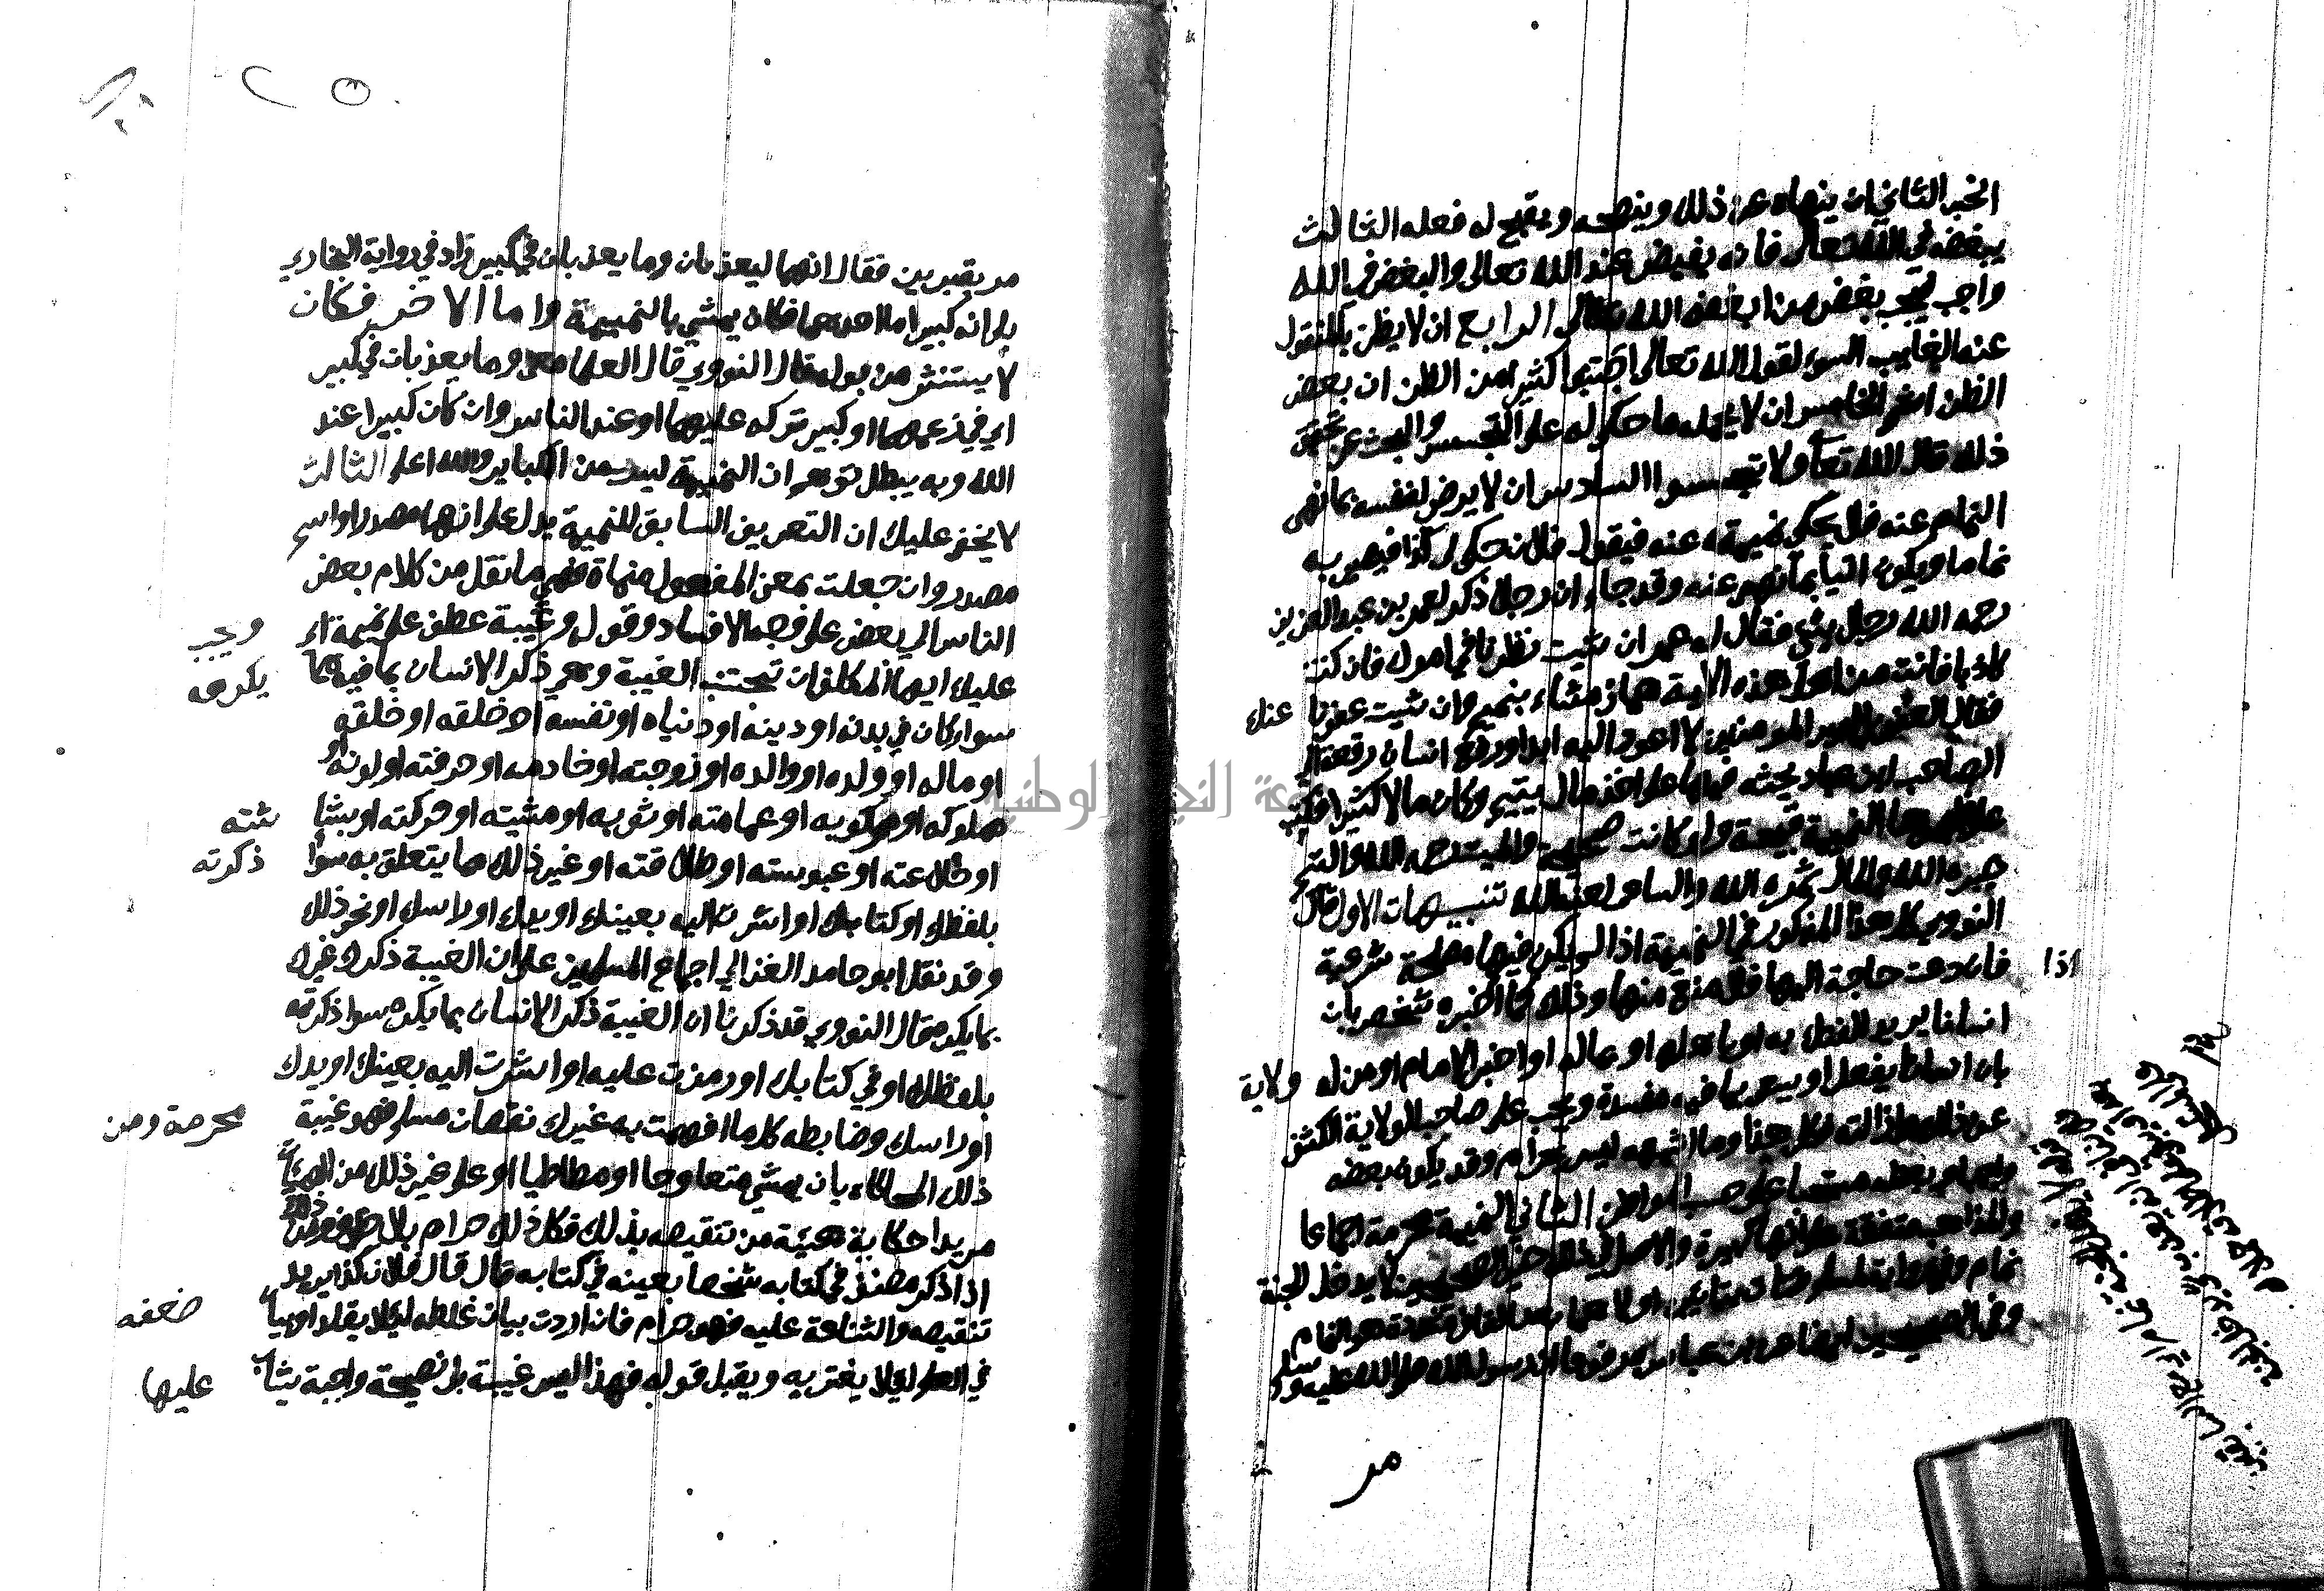 الخبر الثاني ان ينهاه عن ذلك وينصحه ويقبح له فعله الثالث
يبغضه في الله تعالى فانه بغيض عند الله تعالى والبغض في الله
واجب يجب بغض من ابغضه الله تعالى الرابع ان لا يظن بالمنقول
عنه الغايب السوء لقول الله تعالى اجتنبوا كثيرا من الظن ان بعض
الظن اثم الخامس ان لا يحمله ما حكى له على التجسس والبحث عن تحقيق
ذلك قال الله تعالى ولا تجسسوا السادس ان لا يرضى لنفسه بما نهى
النمام عنه فلا يحكي نميمته عنه فيقول فلان حكى لي كذا فيصير به
نماما ويكون اتيا بما نهي عنه وقد جاء ان رجلا ذكر لعمر بن عبد العزيز
رحمه الله رجلا بشي فقال له عمر ان شيت نظرنا في امرك فان كنت
كاذبا فانت من اهل هذه الاية هماز مشاء بنميم وان شيت عفونا عنك
فقال العفو يا امير المومنين لا اعود اليه ابدا ورفع انسان رقعة الى
الصاحب ابن عباد يحثه فيها على اخذ مال يتيم وكان مالا كثيرا فكتب
على ظهرها النميمة قبيحة وان كانت صحيحة والميت رحمه الله واليتيم
جبره الله والمال ثمره الله والساعي لعنه الله تنبيهات الاول قال
النووي كل هذا المذكور في النميمة اذا لم يكن فيها مصلحة شرعية
فان دعت حاجة اليها فلا منع منها وذلك كما اذا اخبره شخص بان
انسانا يريد الفتك به او باهله او بماله او اخبر الامام او من له ولاية
بان انسانا يفعل او يسعى بما فيه مفسدة ويجب على صاحب الولاية الكشف
عن ذلك وازالته فكل هذا وما اشبهه ليس بحرام وقد يكون بعضه
واجبا وبعضه مستحبا على حسب المواطن الثاني النميمة محرمة اجماعا
والمذاهب متفقة على انها كبيرة والاصل في ذلك خبر الصحيحين لا يدخل الجنة
نمام وفي رواية لمسلم قتات
وفي الصحيحين ايضا عن ابن عباس مرفوعا ان رسول الله صلى الله عليه وسلم
مر
مر بقبرين فقال انهما ليعذبان وما يعذبان في كبير زاد في رواية البخاري
بلى انه كبير اما احدهما فكان يمشي بالنميمة واما الاخر فكان
لا يستنثر من بوله قال النووي قال العلما معنى وما يعذبان في كبير
اي في زعمهما او كبير تركه عليهما او عند الناس وان كان كبيرا عند
الله وبه يبطل توهم ان النميمة ليست من الكباير والله اعلم الثالث
لا يخفى عليك ان التعريف السابق للنميمة يدل على انها مصدر او اسم
مصدر وان جعلت بمعنى المفعول منماة فهي ما نقل من كلام بعض
الناس الى بعض على وجه الافساد وقوله وغيبة عطف على نميمة اي ويجب
عليك ايها المكلف ان تجتنب الغيبة وهي ذكر الانسان بما فيه مما يكرهه
سواء كان في بدنه او دينه او دنياه او نفسه او خلقه او خلقه
او ماله او ولده او والده او زوجته او خادمه او حرفته او لونه او
مملوكه او مركوبه او عمامته او ثوبه او مشيته او حركته او بشاشته
او خلاعته او عبوسته او طلاقته او غير ذلك مما يتعلق به سوا ذكرته
بلفظك او كتابك او اشرت اليه بعينك او يدك او راسك او نحو ذلك
وقد نقل ابو حامد الغزالي اجماع المسلمين على ان الغيبة ذكرك غيرك
بما يكره قال النووي قد ذكرنا ان الغيبة ذكر الانسان بما يكره سوا ذكرته
بلفظك او في كتابك او رمزت عليه او اشرت اليه بعينك او يدك
او راسك وضابطه كلما افهمت به غيرك نقصان مسلم فهو غيبة محرمة ومن
ذلك المحاكاة بان يمشي متعاوجا او مطاطيا او على غير ذلك من الهيات
مريدا حكاية هيئة من تنقيصه بذلك فكل ذلك حرام بلا خلاف ومن ذلك
اذا ذكر مصنف في كتابه شخصا بعينه في كتابه قال قال فلان كذا يريد
تنقيصه والشناعة عليه فهو حرام فان اردت بيان غلطه ليلا يقلد او بيان ضعفه
في العلم ليلا يغتر به ويقبل قوله فهذا ليس غيبة بل نصيحة واجبة يثاب عليها